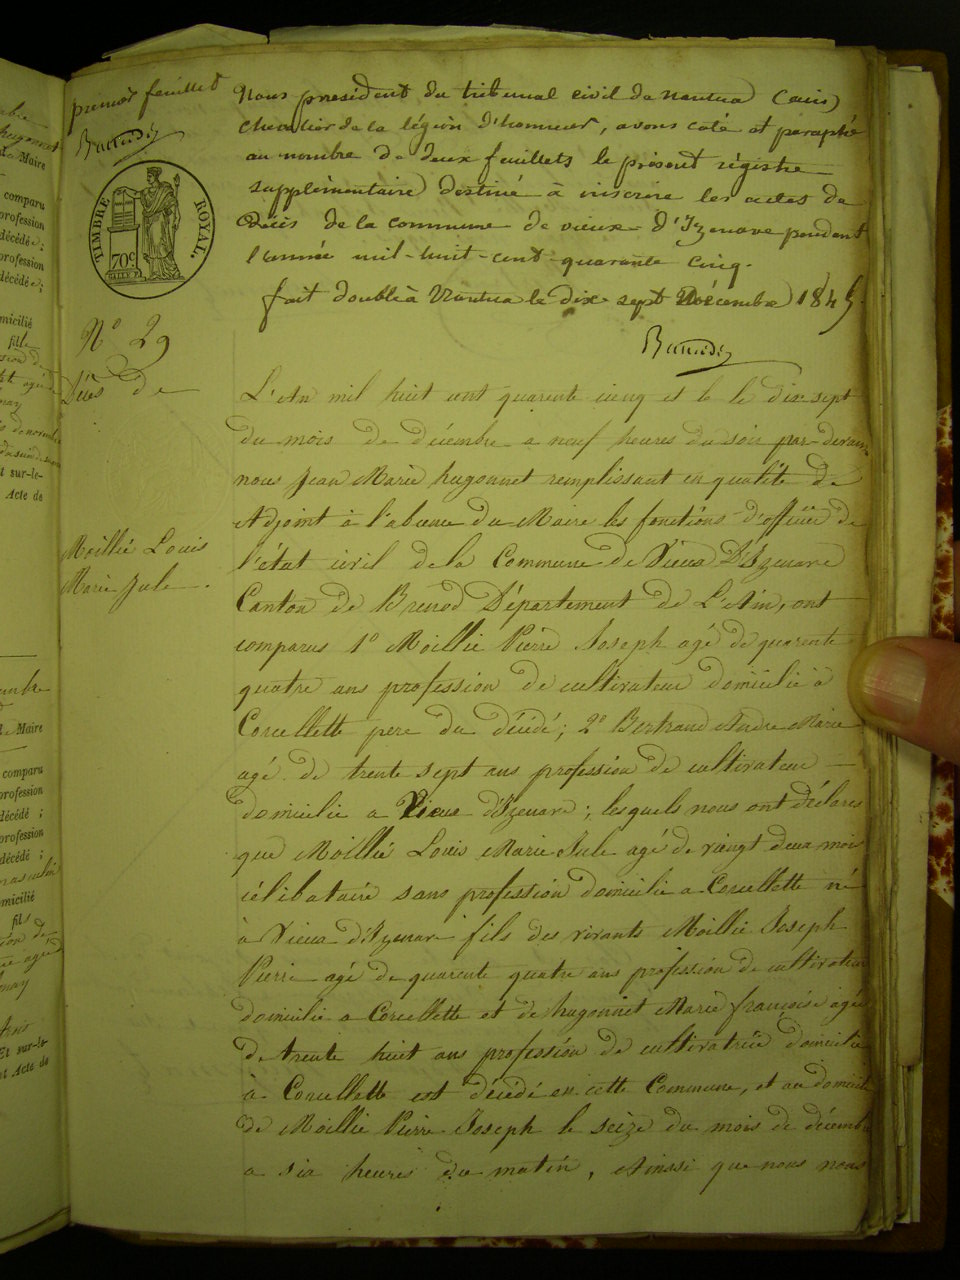 premier feuillet
TIMBRE ROYAL.
70c
Nous president du tribunal civil de nantua (ain)
chevalier de la légion d'honneur, avons coté et paraphé
au nombre de deux feuillets le présent régistre
supplémentaire destiné à inscrire les actes de
Décès de la commune de vieux-d'Izenave pendant
l'année mil-huit-cent-quarante cinq.
fait double à Nantua le dix-sept Décembre 1845.
N° 29
Décès de
Moillié Louis
Marie Jule.
L'An mil huit cent quarente cienq et le le dix sept
du mois de décembre a neuf heures du soir par-devant
nous Jean Marie hugonnet remplissant en qualité de
Adjoint à l'absence du Maire les fonctions d'officier de
l'état civil de la Commune de Vieux D'Izenave
Canton de Brenod Département de L'Ain, ont
comparus 1° Moillié Pierre Joseph agé de quarente
quatre ans profession de cultivateur domicilié à
Corcellette pere du décédé; 2° Bertrand Andre Marie
agé de trente sept ans profession de cultivateur
domicilié a Vieux d'Izenave; lesquels nous ont déclarés
que Moillié Louis Marie Jule agé de viengt deux mois
célibataire sans profession domicilié a Corcellette né
à Vieux d'Izenave fils des vivants Moillié Joseph
Pierre agé de quarente quatre ans profession de cultivateur
domicilié a Corcellette et de hugonnet Marie françoise agée
de trente huit ans profession de cultivatrice domicilié
à Corcellette est décédé en cette Commune, et au domicile
de Moillié Pierre Joseph le seize du mois de décembre
a six heures du matin, Ainssi que nous nous